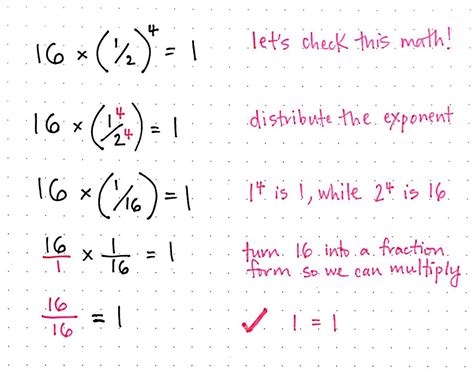 16 × (1/2)⁴ = 1 let's check this math!
16 × (1⁴/2⁴) = 1 distribute the exponent
16 × (1/16) = 1 1⁴ is 1, while 2⁴ is 16.
16/1 × 1/16 = 1 turn 16 into a fraction
form so we can multiply
16/16 = 1 ✓ 1 = 1